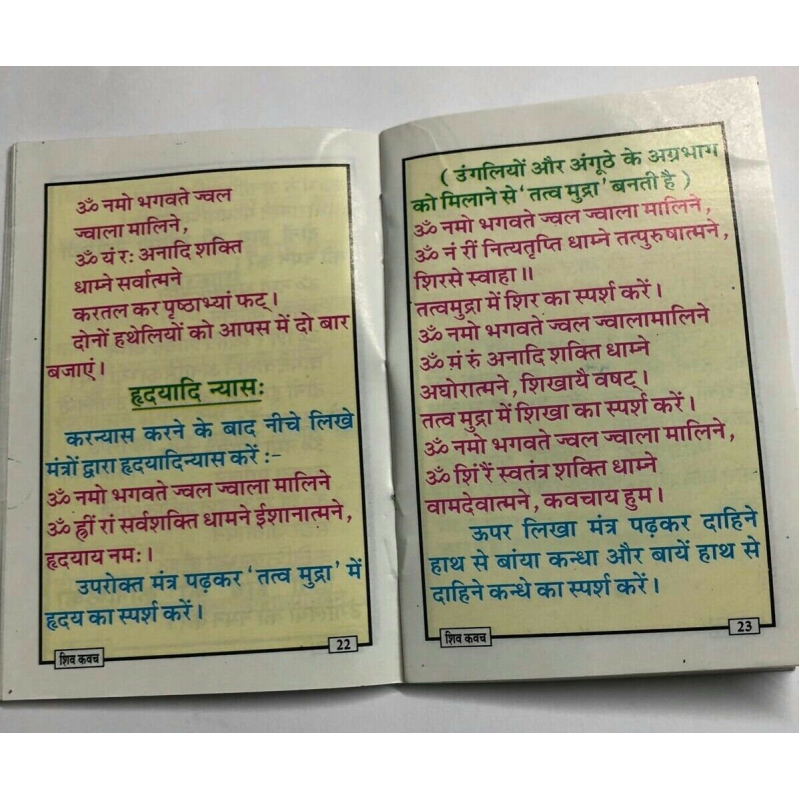 ॐ नमो भगवते ज्वल
ज्वाला मालिने,
ॐ यं रः अनादि शक्ति
धाम्ने सर्वात्मने
करतल कर पृष्ठाभ्यां फट्।
दोनों हथेलियों को आपस में दो बार
बजाएं।
हृदयादि न्यासः
करन्यास करने के बाद नीचे लिखे
मंत्रों द्वारा हृदयादिन्यास करें :-
ॐ नमो भगवते ज्वल ज्वाला मालिने
ॐ ह्रीं रां सर्वशक्ति धामने ईशानात्मने,
हृदयाय नमः।
उपरोक्त मंत्र पढ़कर 'तत्व मुद्रा' में
हृदय का स्पर्श करें।
शिव कवच
22
( उंगलियों और अंगूठे के अग्रभाग
को मिलाने से 'तत्व मुद्रा' बनती है )
ॐ नमो भगवते ज्वल ज्वाला मालिने,
ॐ नं रीं नित्यतृप्ति धाम्ने तत्पुरुषात्मने,
शिरसे स्वाहा॥
तत्वमुद्रा में शिर का स्पर्श करें।
ॐ नमो भगवते ज्वल ज्वालामालिने
ॐ मं रुं अनादि शक्ति धाम्ने
अघोरात्मने, शिखायै वषट्।
तत्व मुद्रा में शिखा का स्पर्श करें।
ॐ नमो भगवते ज्वल ज्वाला मालिने,
ॐ शिं रैं स्वतंत्र शक्ति धाम्ने
वामदेवात्मने, कवचाय हुम।
ऊपर लिखा मंत्र पढ़कर दाहिने
हाथ से बांया कन्धा और बायें हाथ से
दाहिने कन्धे का स्पर्श करें।
शिव कवच
23